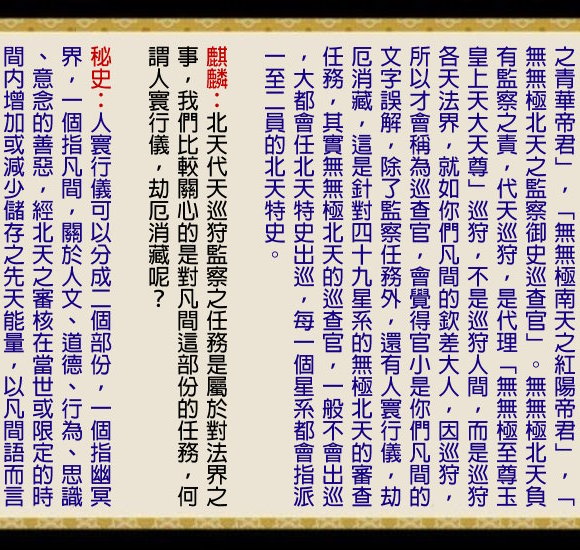 之青華帝君」，「無無極南天之紅陽帝君」，「
無無極北天之監察御史巡查官」。無無極北天負
有監察之責，代天巡狩，是代理「無無極至尊玉
皇上天大天尊」巡狩，不是巡狩人間，而是巡狩
各天法界，就如你們凡間的欽差大人，因巡狩，
所以才會稱為巡查官，會覺得官小是你們凡間的
文字誤解，除了監察任務外，還有人寰行儀，劫
厄消藏，這是針對四十九星系的無極北天的審查
任務，其實無無極北天的巡查官，一般不會出巡
，大都會任北天特史出巡，每一個星系都會指派
一至二員的北天特史。
麒麟：北天代天巡狩監察之任務是屬於對法界之
事，我們比較關心的是對凡間這部份的任務，何
謂人寰行儀，劫厄消藏呢？
秘史：人寰行儀可以分成二個部份，一個指幽冥
界，一個指凡間，關於人文、道德、行為、思識
、意念的善惡，經北天之審核在當世或限定的時
間內增加或減少儲存之先天能量，以凡間語而言